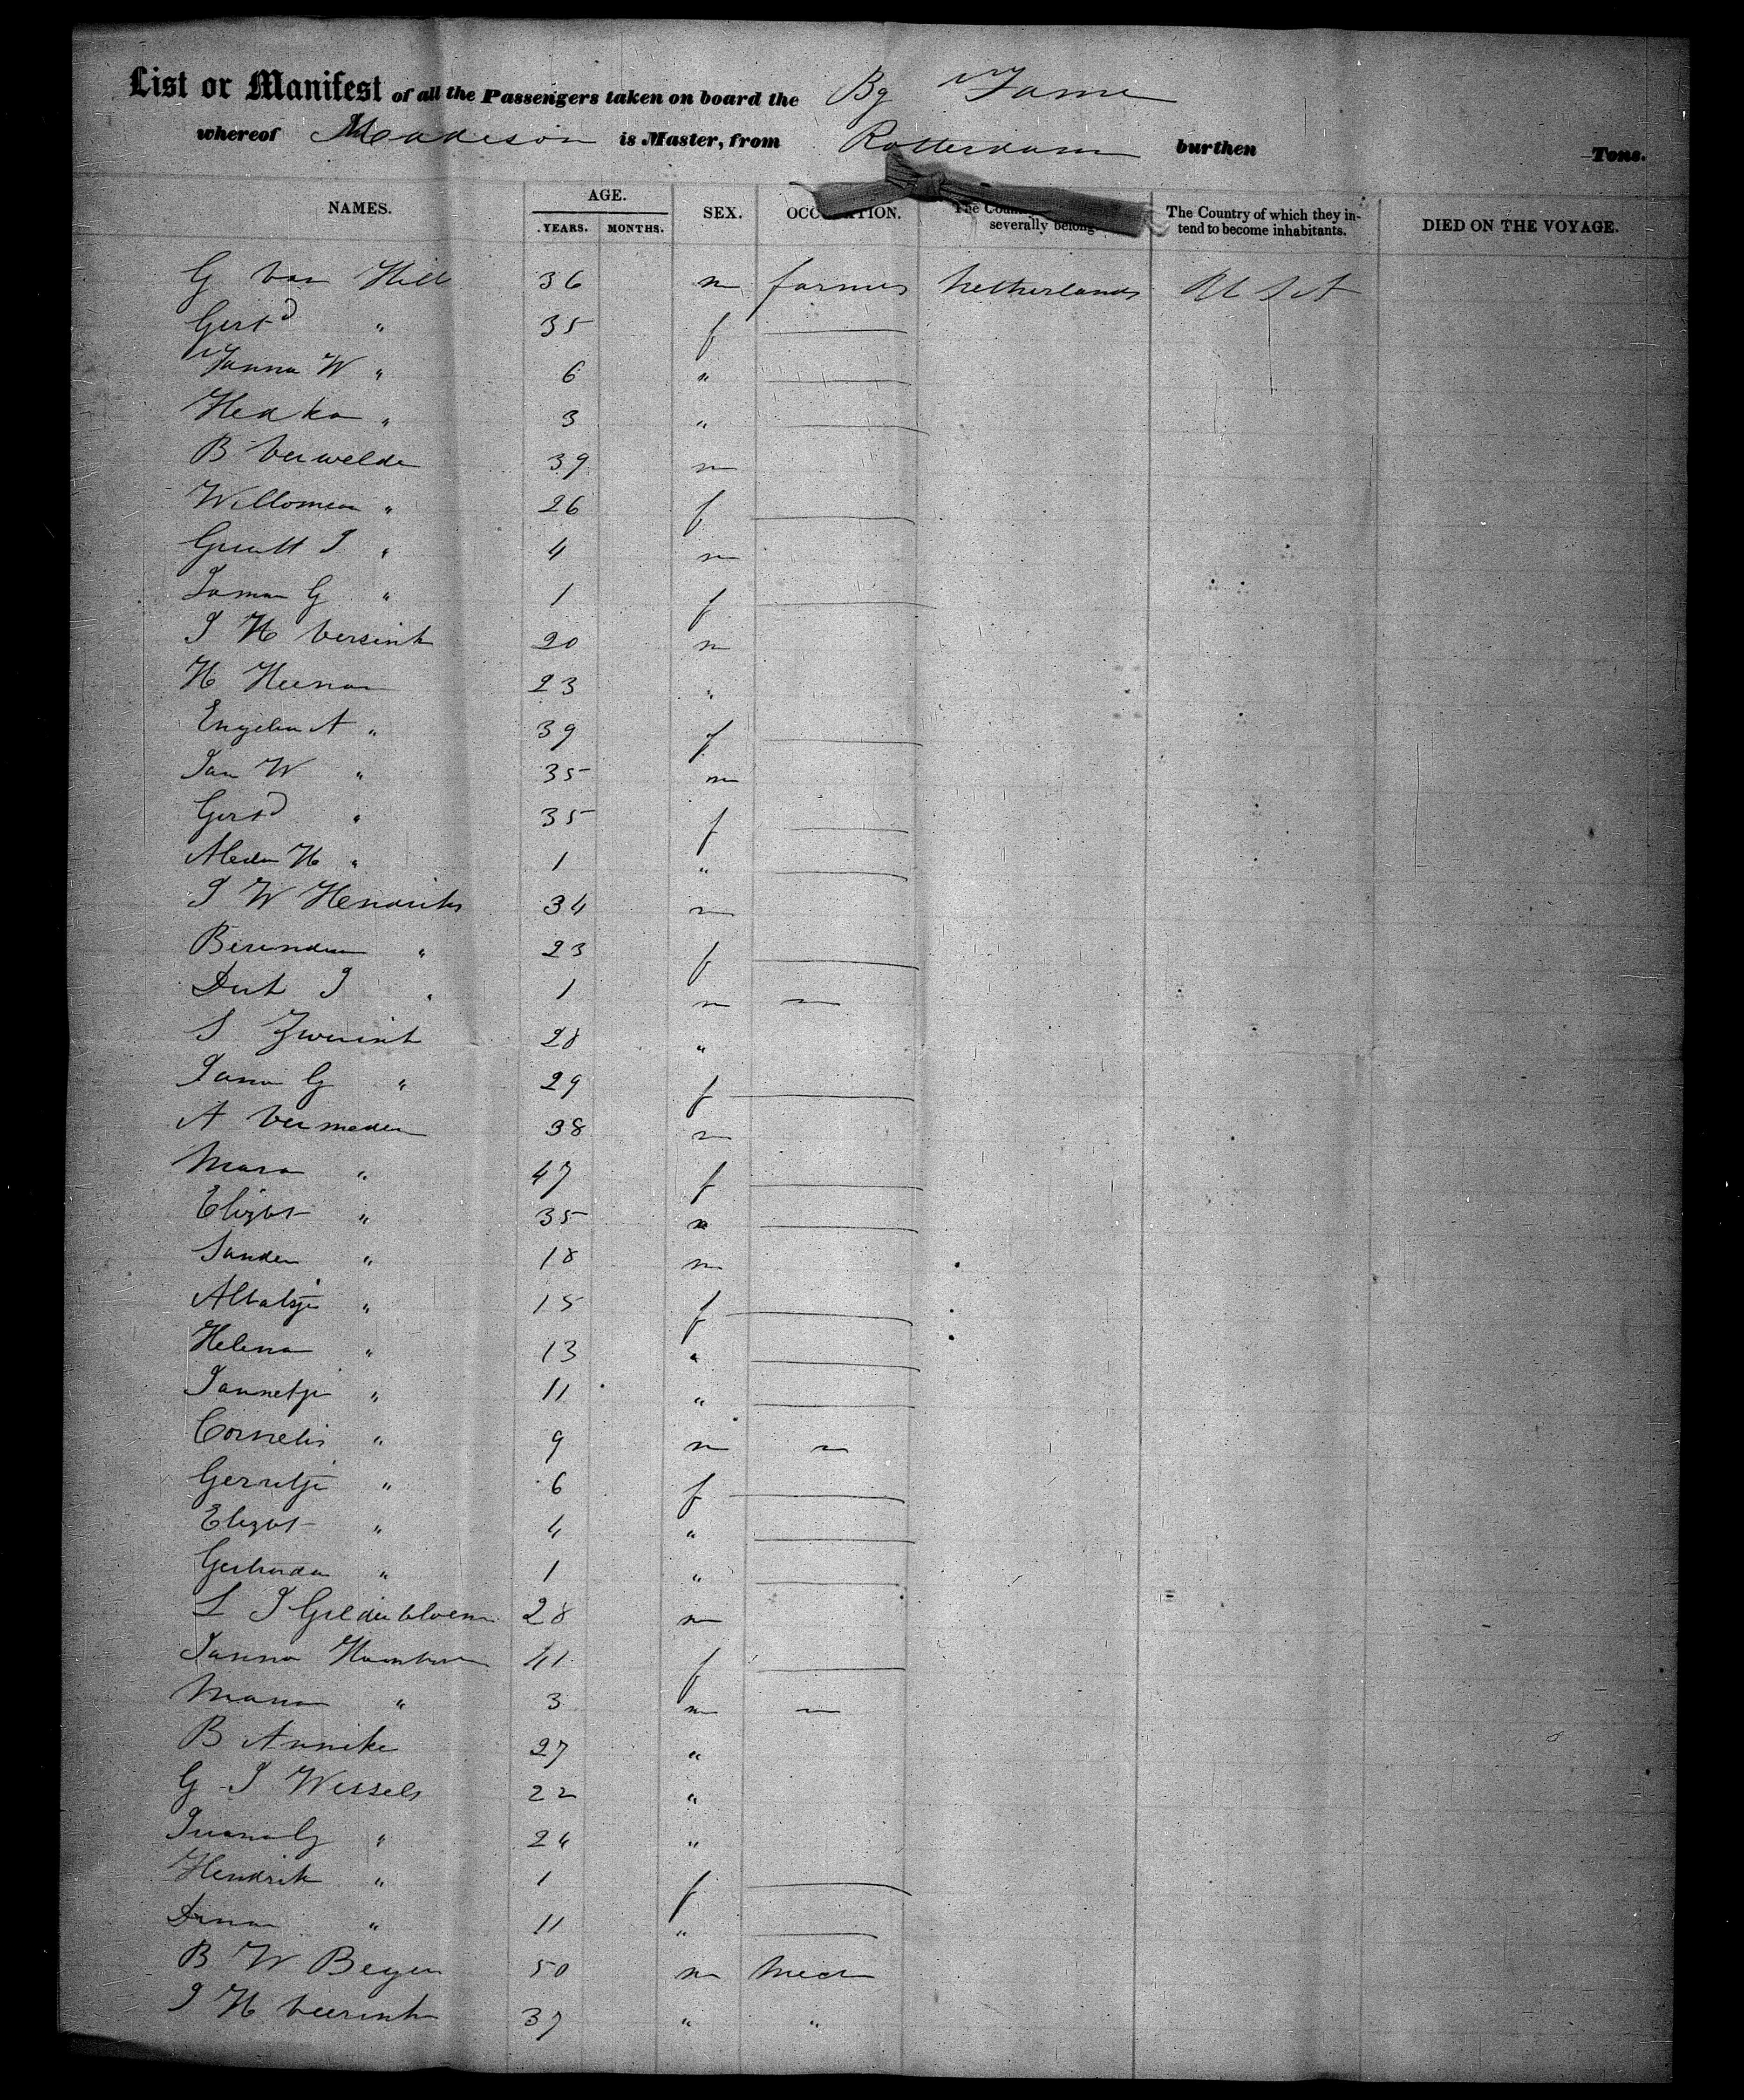 List or Manifest of all the Passengers taken on board the Bg Fame
whereof Maddison is Master, from Rotterdam burthen Tons.
NAMES. AGE. YEARS. MONTHS. SEX. OCCUPATION. The Country severally belong. The Country of which they in-tend to become inhabitants. DIED ON THE VOYAGE.
G Van Hill 36 m farmer Netherlands U S A
Gertd " 35 f
Janna W " 6 "
3 "
B Verwelde 39 m
Willomena " 26 f
Gerritt J " 4 m
G " 1 f
J H Versink 20 m
H 23 "
Engelin A " 39 f
Jan W " 35 m
Gertd " 35 f
Aleda H " 1 "
J W Hendriks 34 m
Berendina " 23 f
Derk J " 1 m
Zwerink 28 "
Janna G " 29 f
A Vermeden 38 m
Mara " 47 f
Elizbt " 35 m
Sander " 18 m
Altatje " 15 f
Helena " 13 "
Jannetje " 11 "
Cornelis " 9 m
Gerritje " 6 f
Elizbt " 4 "
Gertruda " 1 "
L J Gildenbloem 28 m
Janna 41 f
" 3 m
B Annike 27 "
G J Wessels 22 "
" 24 "
Hendrik " 1 f
" 11 "
B W Beyer 50 m Mech
J H Veerink 37 " "